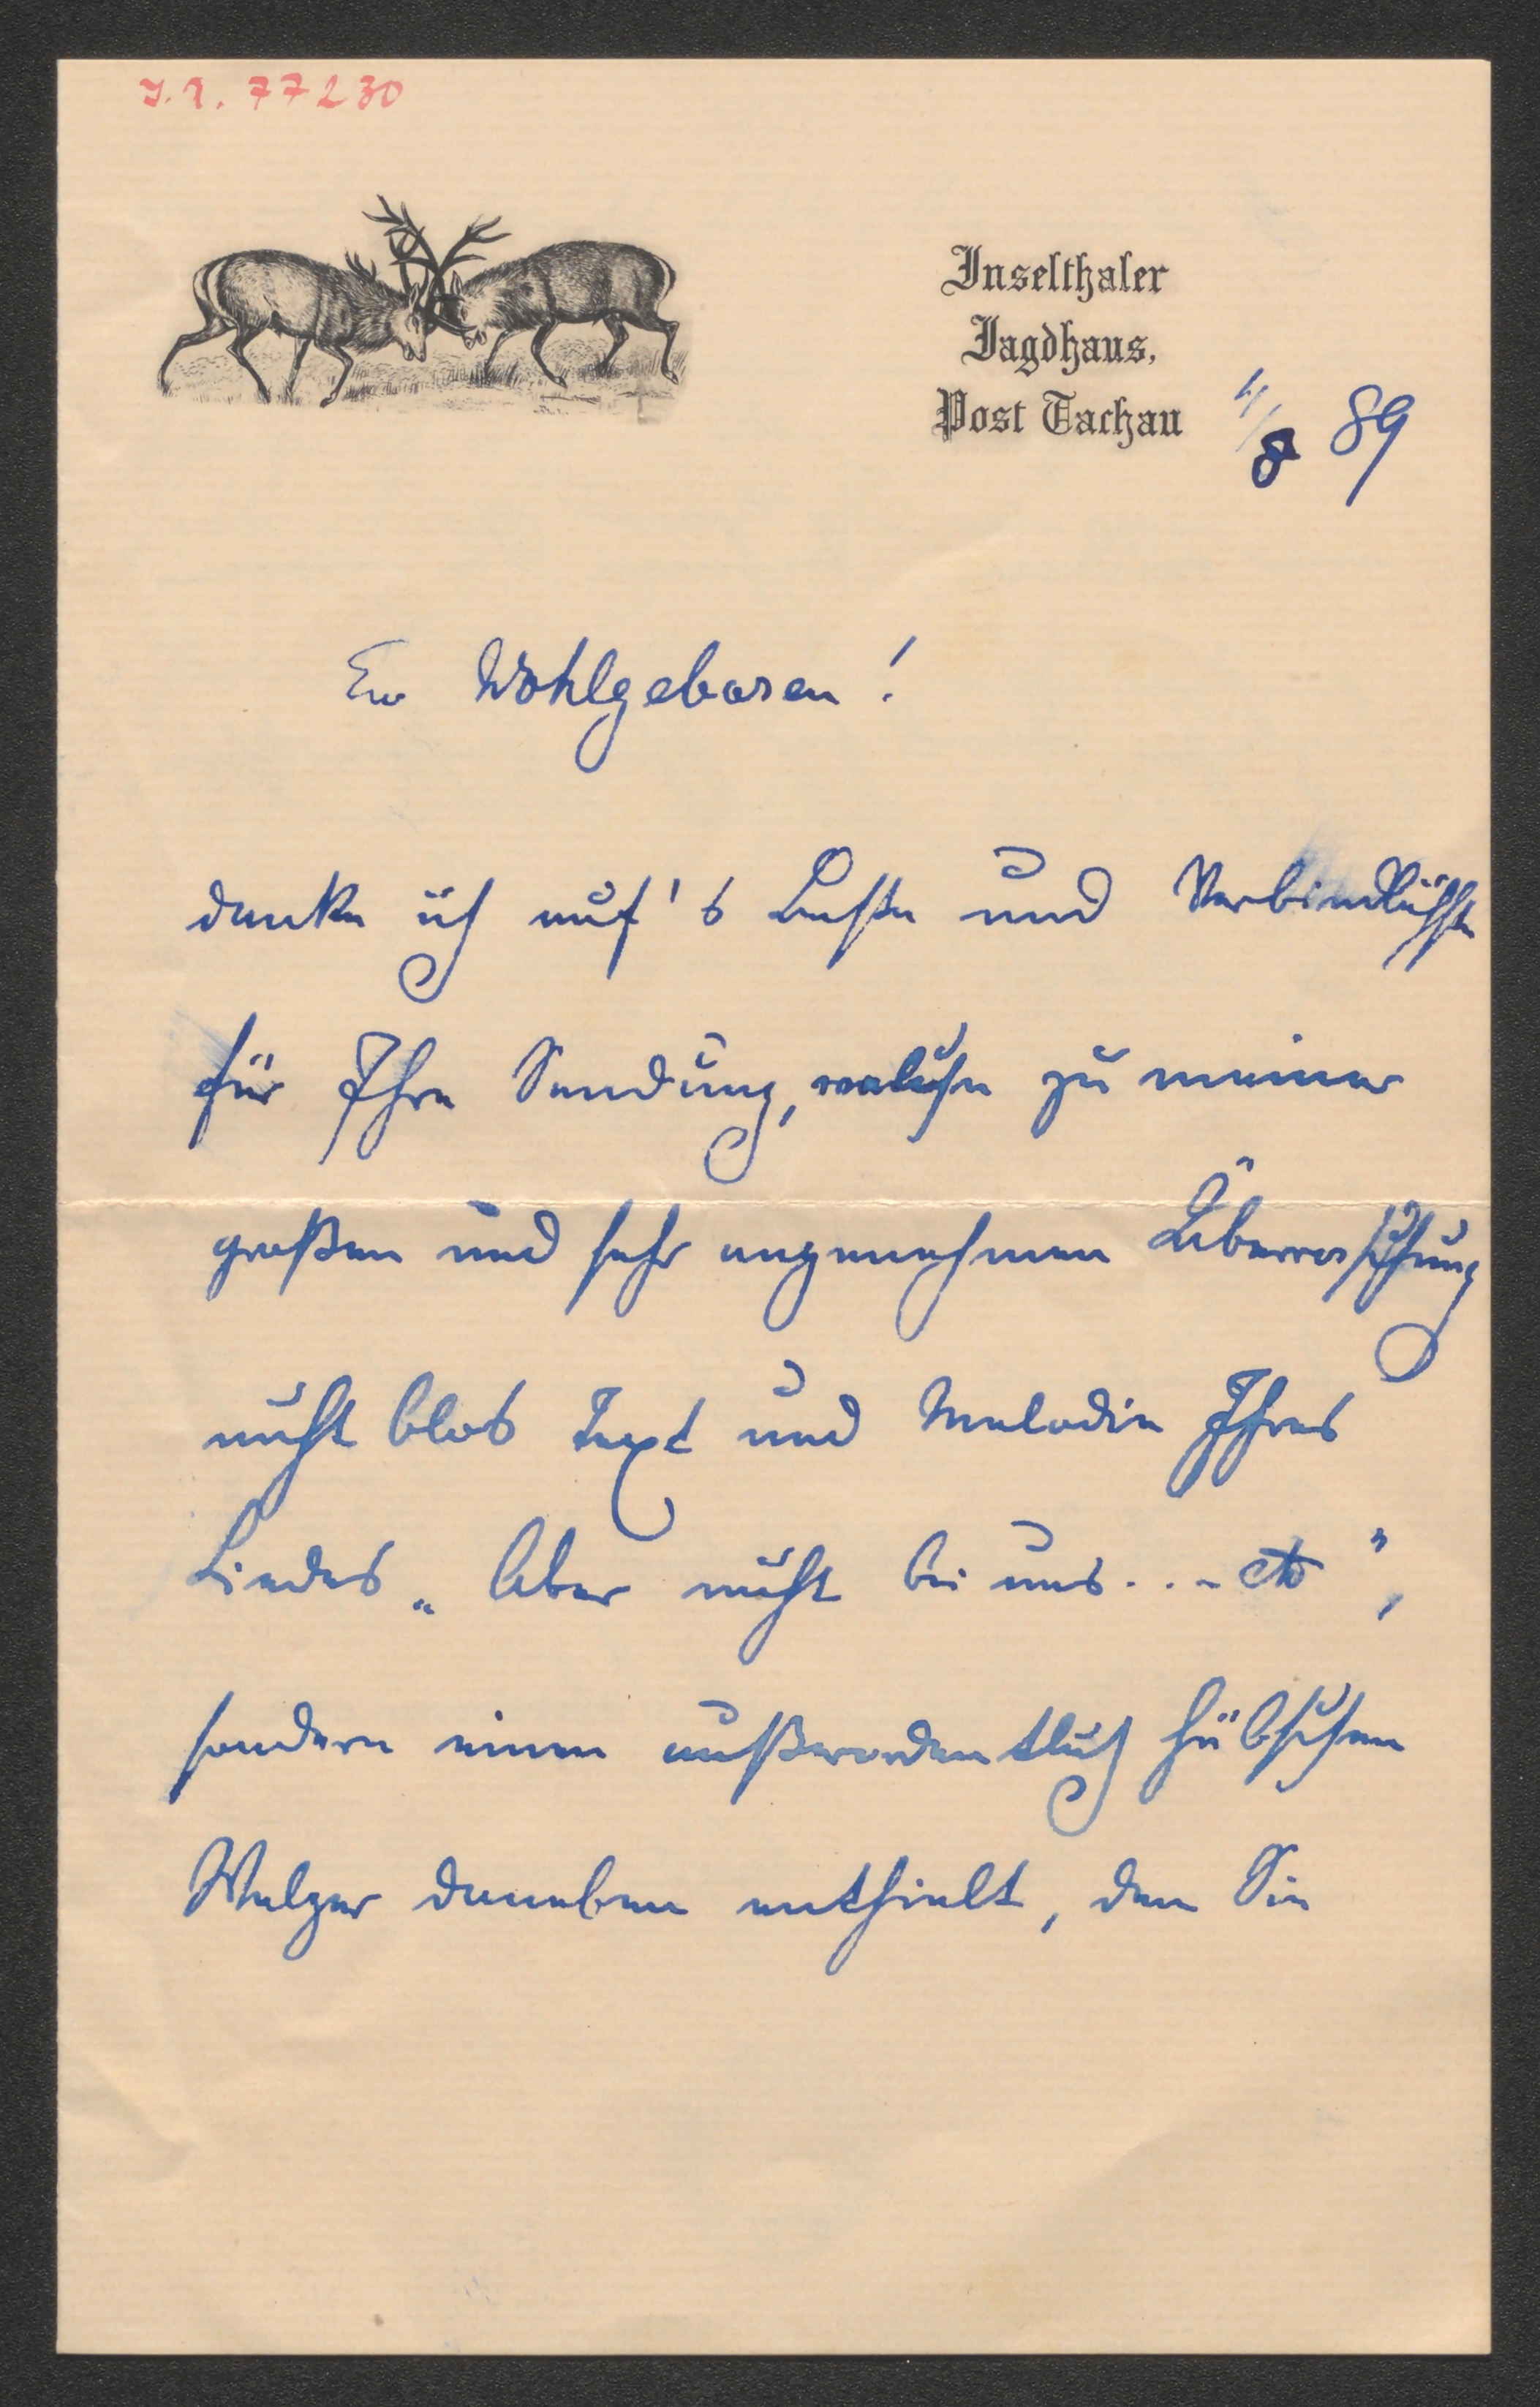 I.N. 77230
Inselthaler
Jagdhaus,
Post Tachau
4/8 89
Ew Wohlgeboren!
danke ich auf's Beste und Verbindlichste
für Ihre Sendung, welche zu meiner
großen und sehr angenehmen Überraschung
nicht blos Text und Melodie Ihres
Liedes „Aber nicht bei uns... etc",
sondern einen außerordentlich hübschen
Walzer daneben enthielt, den Sie